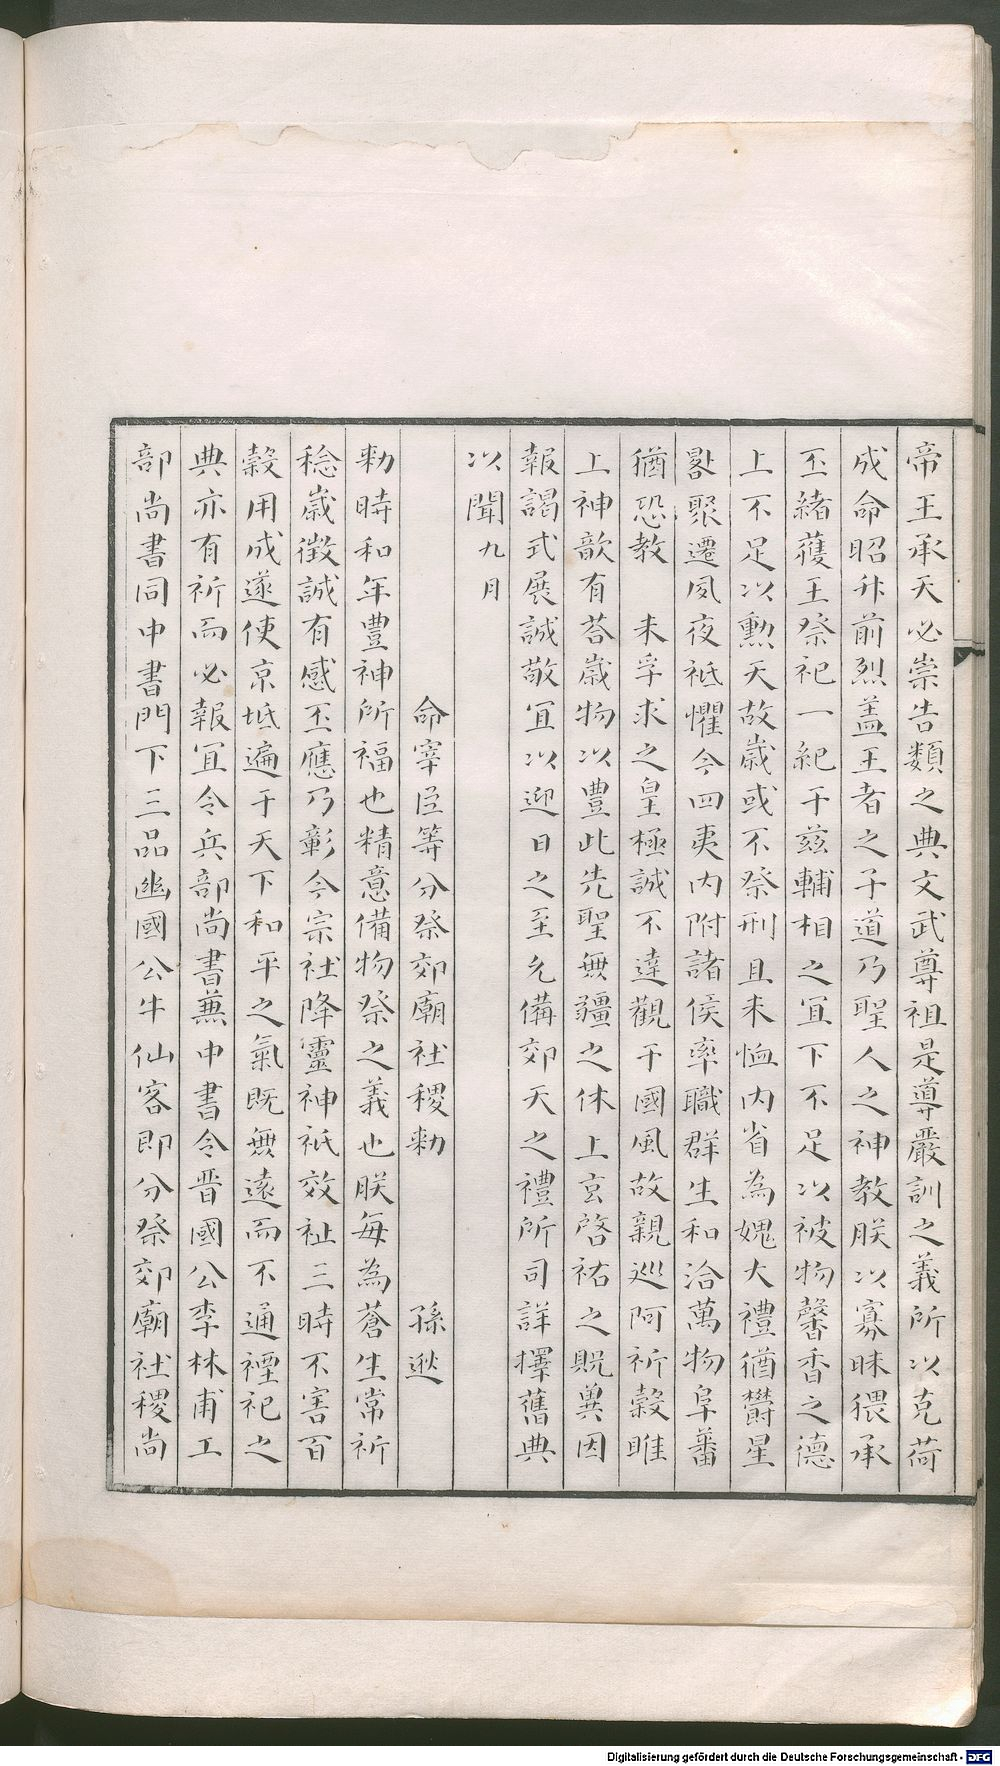 帝王承天必崇告類之典文武尊祖是導嚴訓之義所以克荷
成命昭升前烈盖王者之子道乃聖人之神教朕以寡昧猥承
丕緒䕶主祭祀一紀于兹輔相之冝下不足以被物馨香之德
上不足以勲天故歲或不祭刑且未恤内省為媿大禮猶欝星
畧聚遷夙夜祗懼今四夷内附諸侯率職群生和洽萬物阜蕃
猶恐教　未孚求之皇極誠不違觀于國風故親巡阿祈穀睢
上神歆有荅歲物以豊此先聖無疆之休上玄啓祐之貺兾因
報謁式展誠敬冝以迎日之至允備郊天之禮所司詳擇舊典
以聞九月
命宰臣等分祭郊廟社稷勑　孫逖
勑時和年豊神所福也精意備物祭之義也朕每為蒼生常祈
稔歲徴誠有感丕應乃彰今宗社降靈神祇效祉三時不害百
糓用成遂使京坻遍于天下和平之氣既無遠而不通禋祀之
典亦有祈而必報冝令兵部尚書蕪中書令晋國公李林甫工
部尚書同中書門下三品豳國公牛仙客即分祭郊廟社稷尚
Digitalisierung gefördert durch die Deutsche Forschungsgemeinschaft - DFG